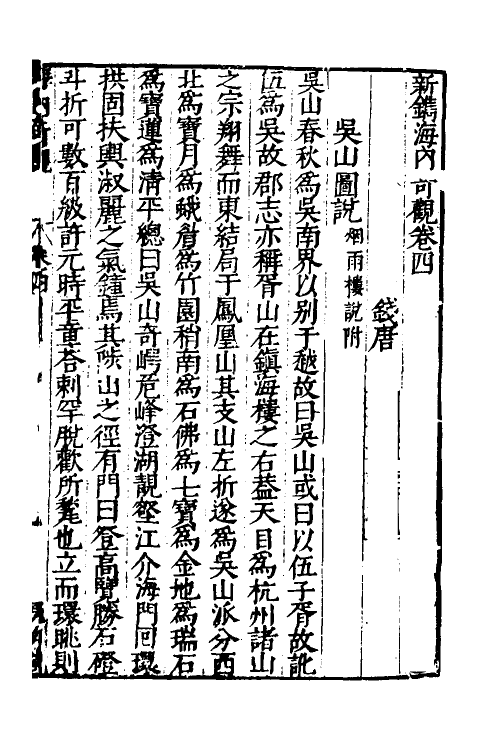 新鐫海內奇觀卷四
錢唐
吳山圖說 烟雨樓說附
吳山春秋為吳南界以別于越故曰吳山或曰以伍子胥故訛
伍為吳故郡志亦稱胥山在鎮海樓之右葢天目為杭州諸山
之宗翔舞而東結局于鳳凰山其支山左折遂為吳山派分西
北為寶月為蛾眉為竹園稍南為石佛為七寶為金地為瑞石
為寶蓮為清平總曰吳山奇崿危峰澄湖靚壑江介海門回環
拱固扶輿淑麗之氣鍾焉其陟山之徑有門曰登高覽勝石磴
斗折可數百級許元時平章荅剌罕脫歡所甃也立而環眺則
海內奇觀
卷四